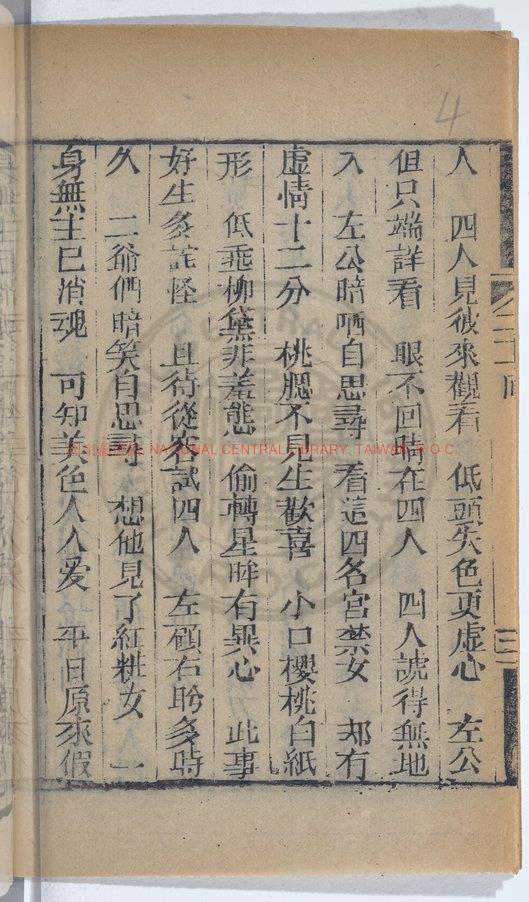 4
人　四人見彼來觀看　低頭失色更虛心　左公
但只端詳看　眼不回睛在四人　四人諕得無地
入　左公暗哂自思尋　看這四名宮禁女　却有
虛情十二分　桃腮不見生歡喜　小口櫻桃白紙
形　低垂柳黛非羞態　偷轉星眸有異心　此事
好生多詫怪　且待從容試四人　左顧右盼多時
久　二爺們暗笑自思尋　想他見了紅粧女　一
身無主已消魂　可知美色人人愛　平日原來假
NATIONAL CENTRAL LIBRARY, TAIWAN, R.O.C.